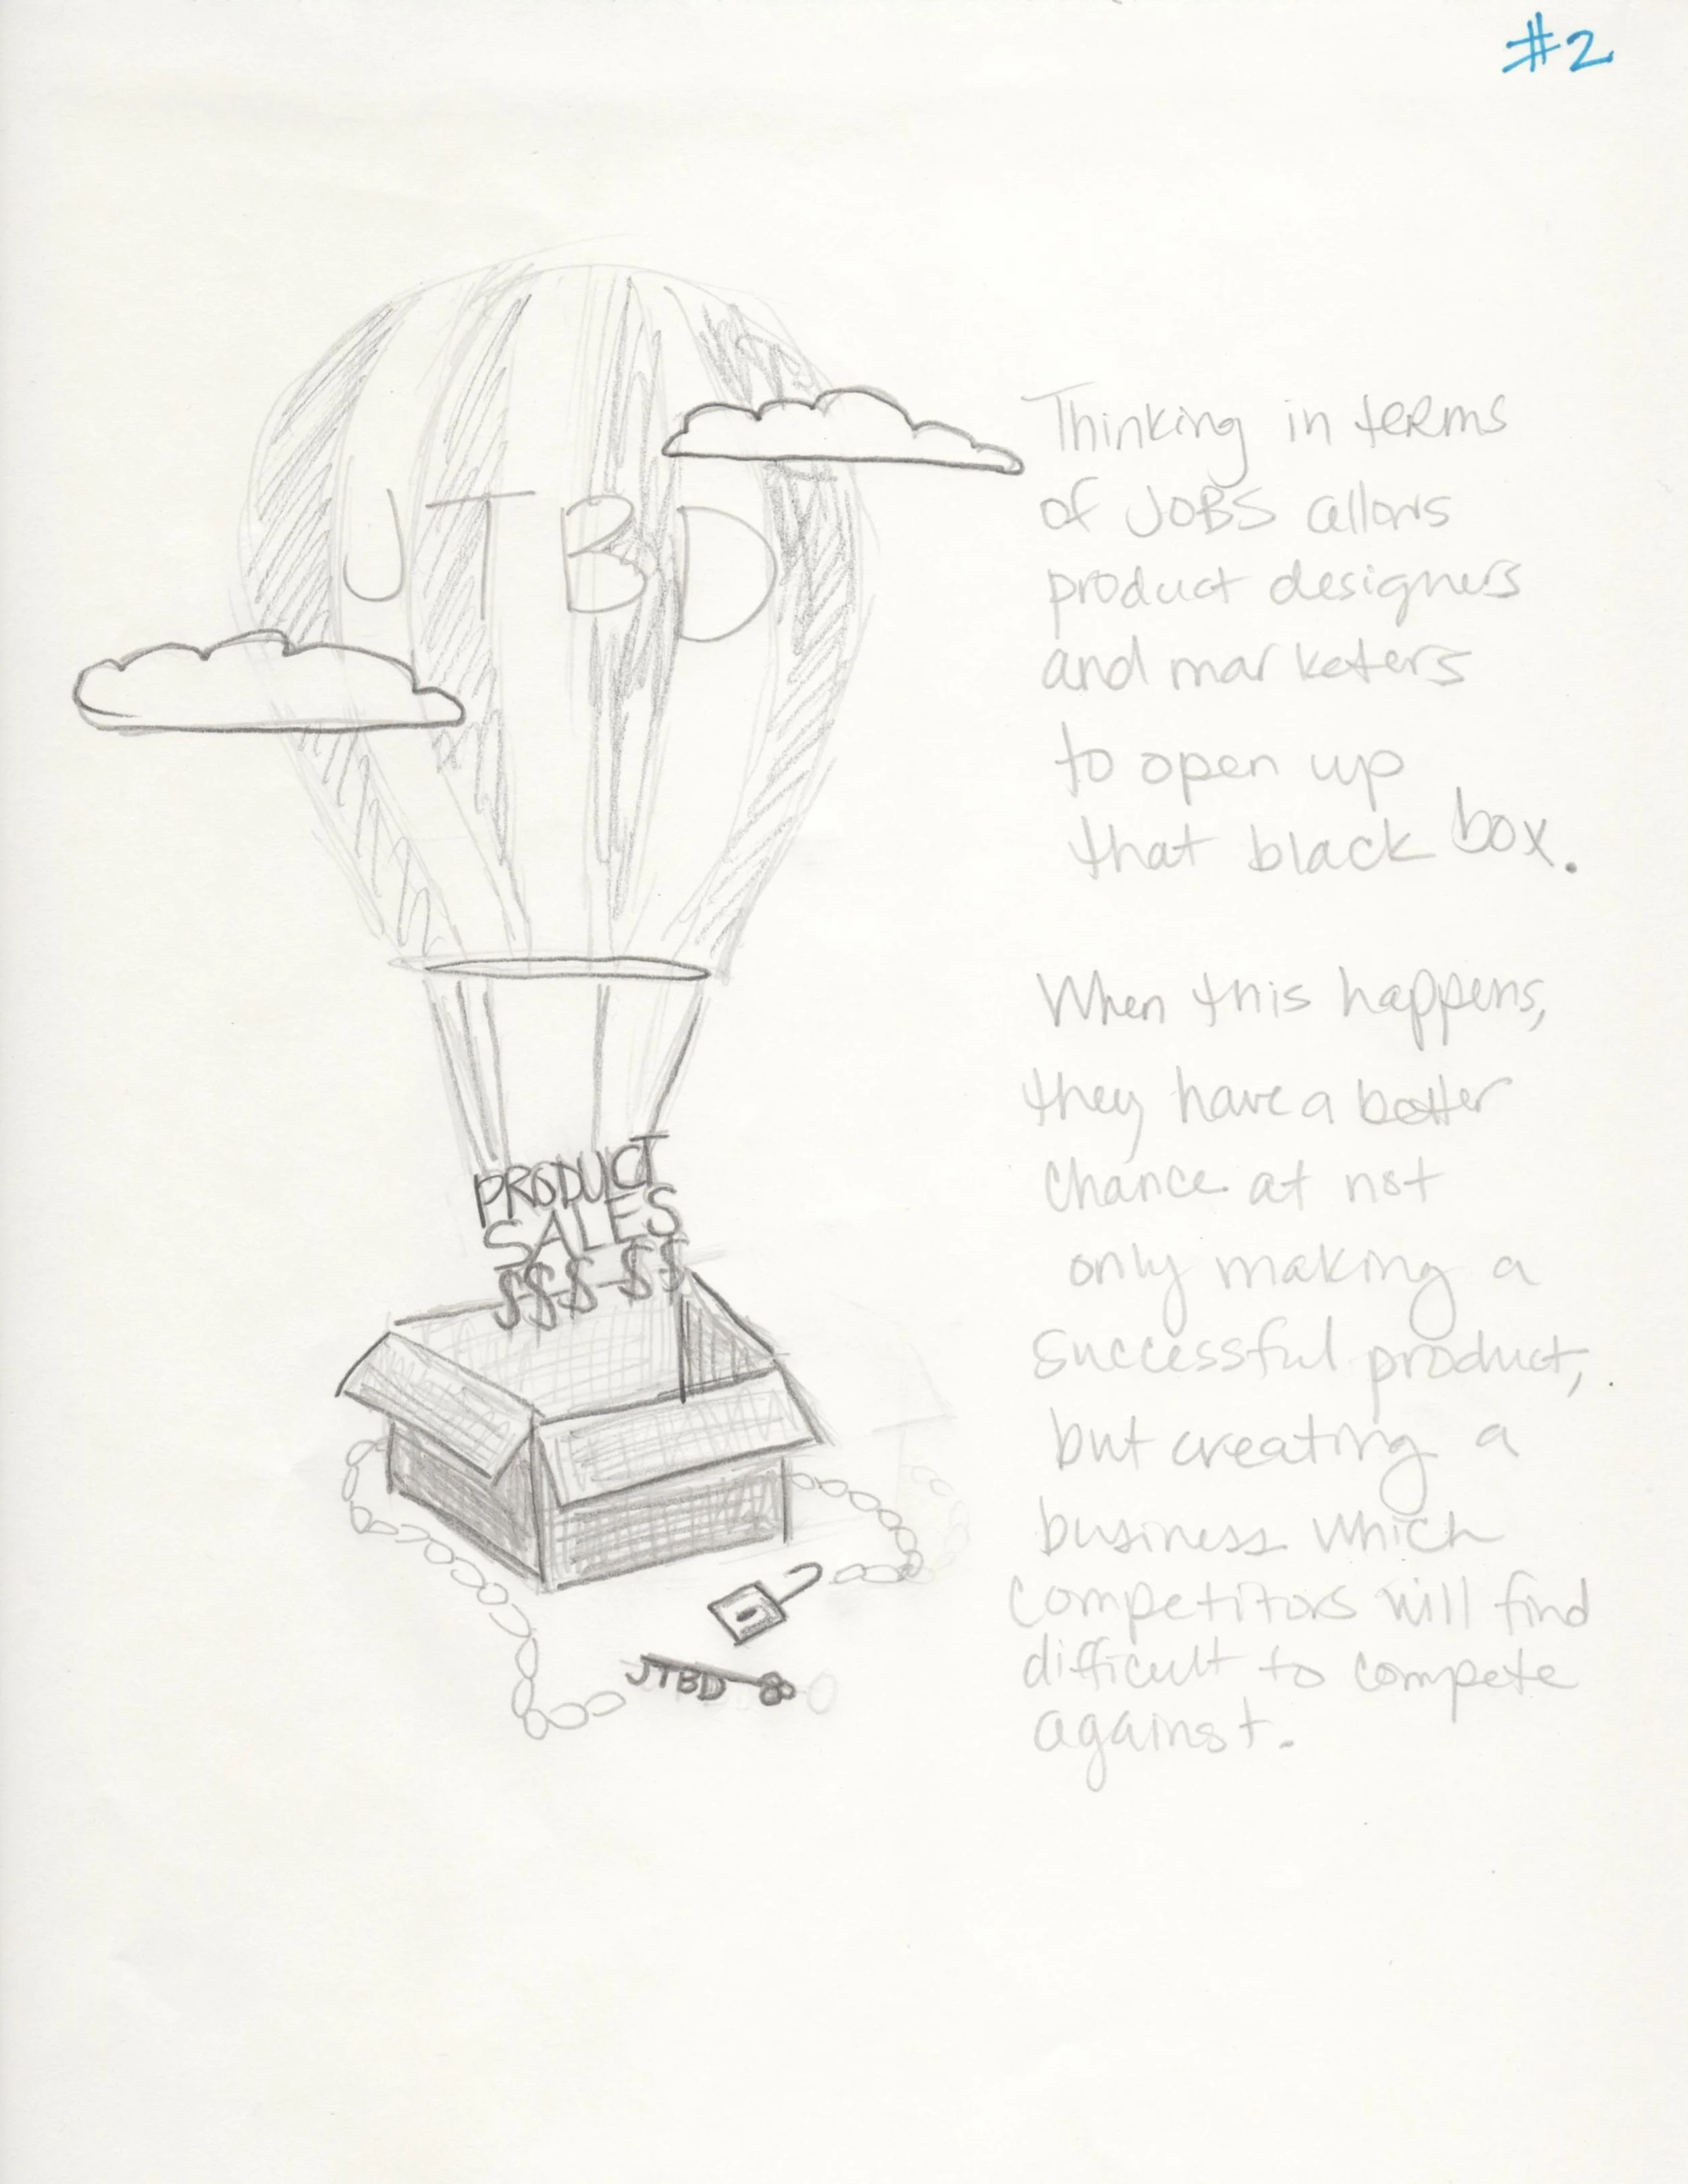 #2
JTBD
PRODUCT
SALES
$$$ $$
JTBD
Thinking in terms
of JOBS allows
product designers
and marketers
to open up
that black box.
When this happens,
they have a better
chance at not
only making a
successful product,
but creating a
business which
competitors will find
difficult to compete
against.